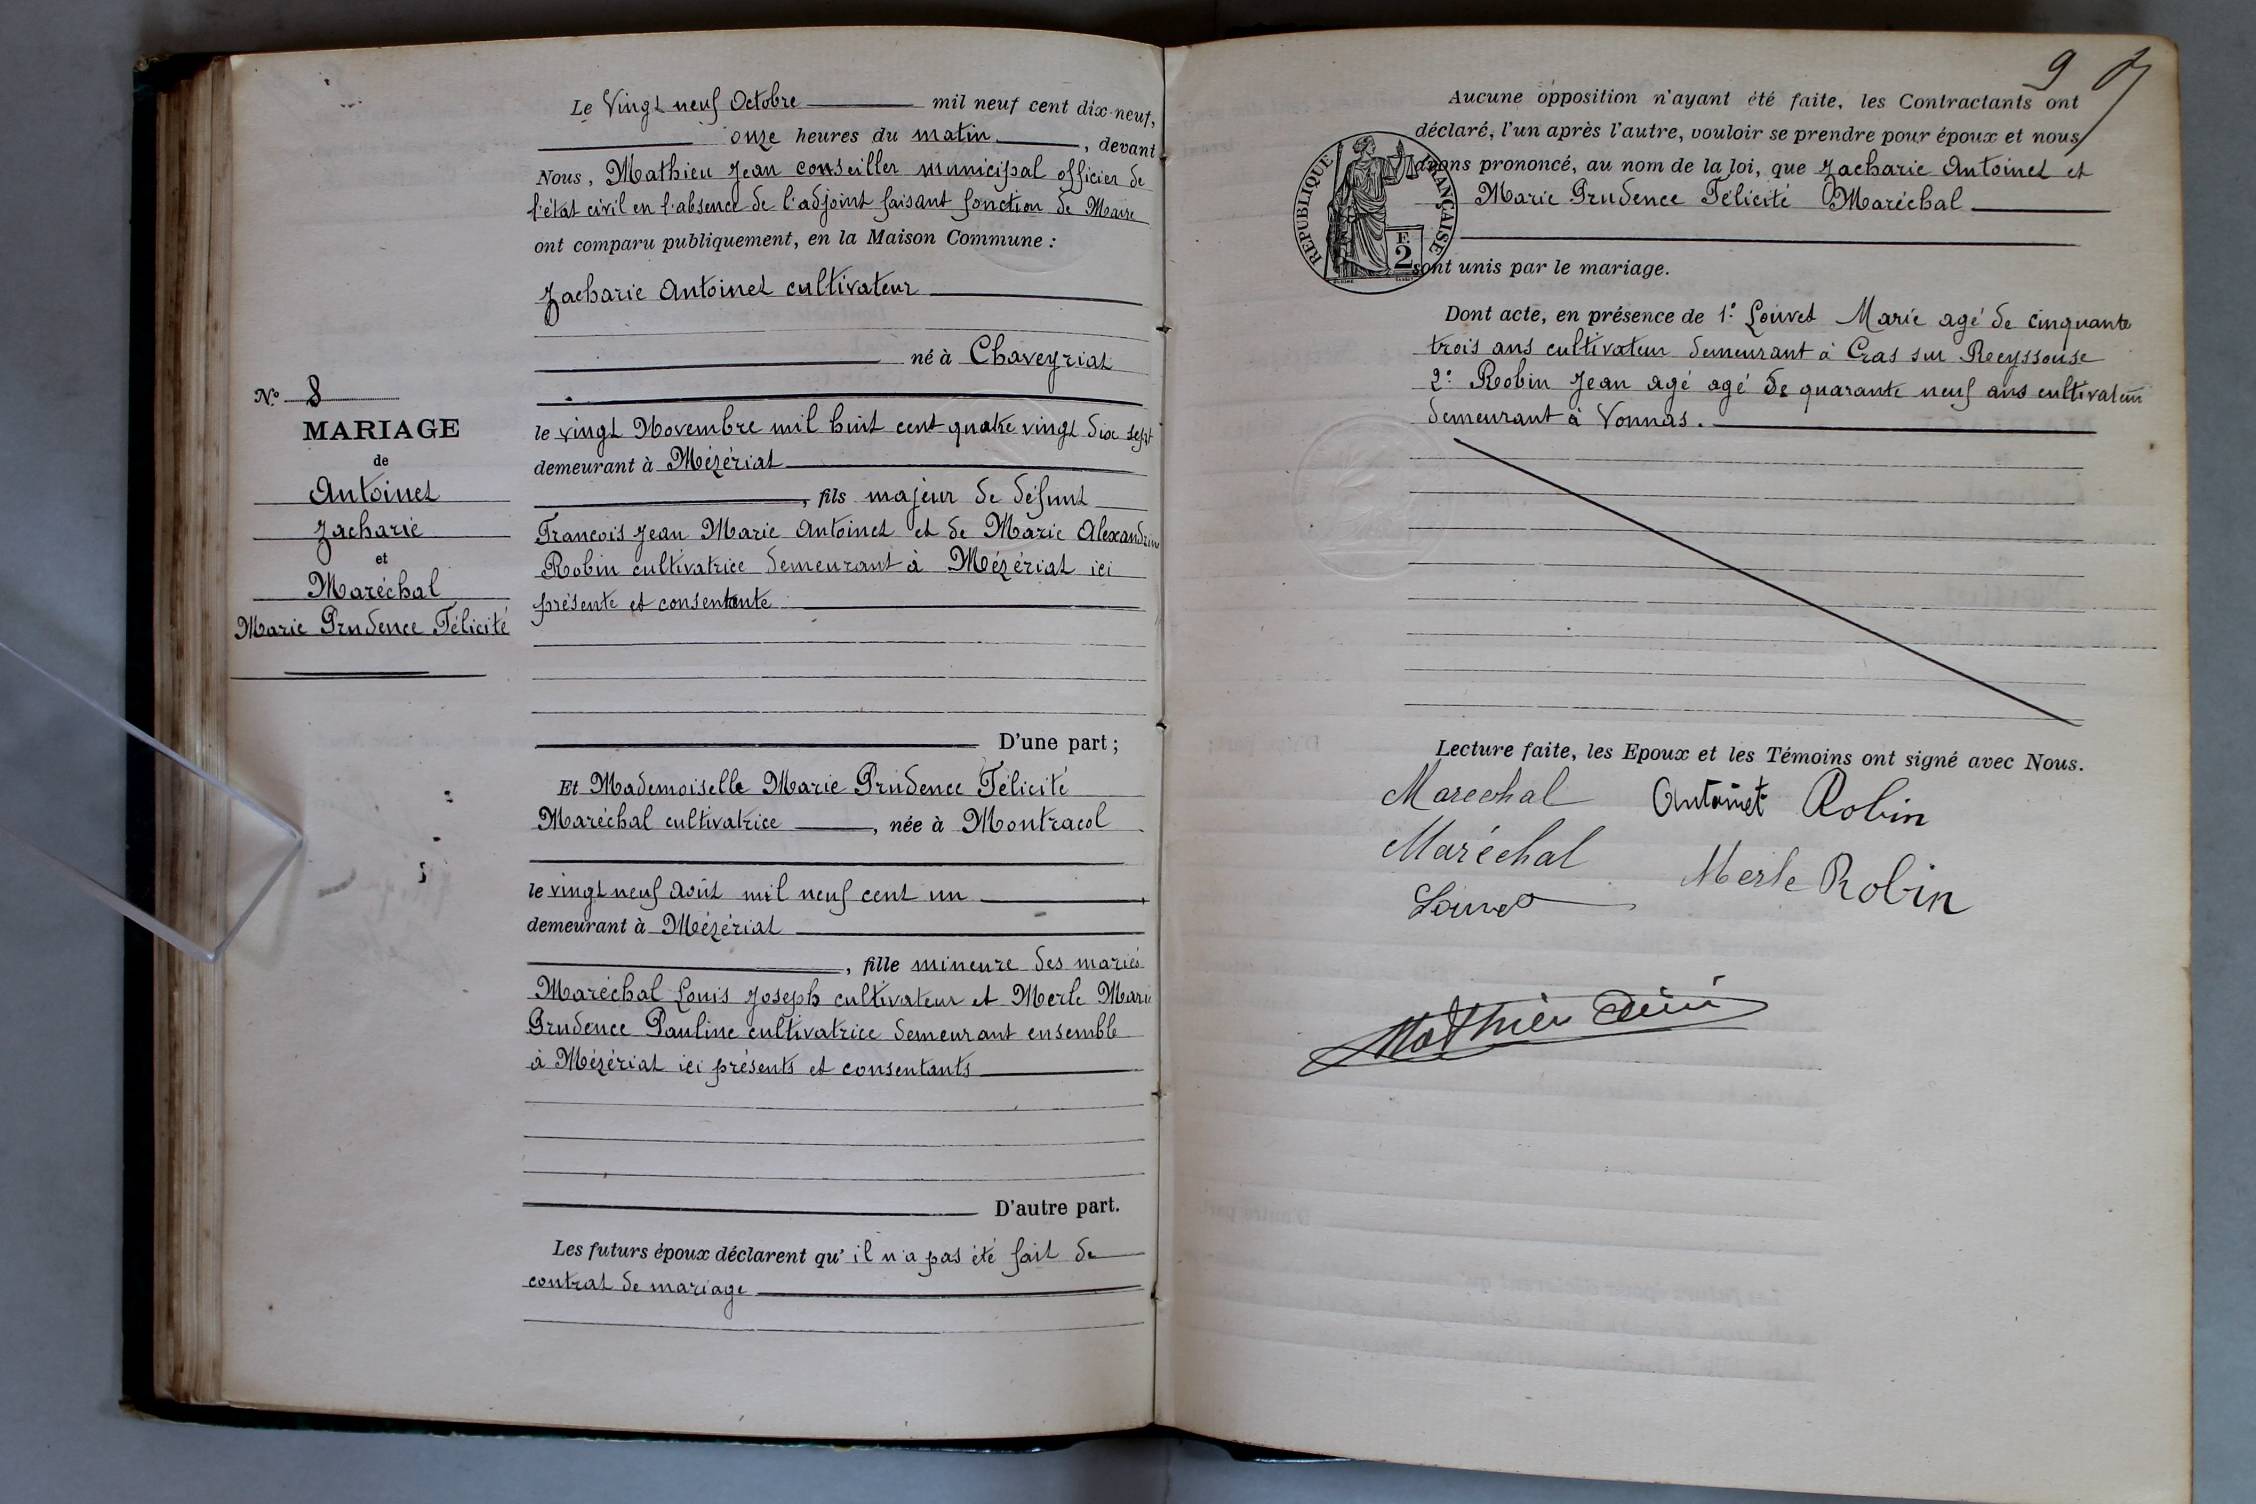 Le Vingt neuf Octobre mil neuf cent dix-neuf,
onze heures du matin, devant
Nous, Mathieu Jean conseiller municipal officier de
l'état civil en l'absence de l'adjoint faisant fonction de Maire
ont comparu publiquement, en la Maison Commune :
Zacharie Antoinet cultivateur
né à Chaveyriat
le vingt Novembre mil huit cent quatre vingt dix sept
demeurant à Mézériat
, fils majeur de défunt
François Jean Marie Antoinet et de Marie Alexandrine
Robin cultivatrice demeurant à Mézériat ici
présente et consentante
D'une part ;
N° 8
MARIAGE
de
Antoinet
Zacharie
et
Maréchal
Marie Prudence Félicité
Et Mademoiselle Marie Prudence Félicité
Maréchal cultivatrice, née à Montracol
le vingt neuf Août mil neuf cent un
demeurant à Mézériat
, fille mineure des mariés
Maréchal Louis Joseph cultivateur et Merle Marie
Prudence Pauline cultivatrice demeurant ensemble
à Mézériat ici présents et consentants
D'autre part.
Les futurs époux déclarent qu'il n'a pas été fait de
contrat de mariage
9
Aucune opposition n'ayant été faite, les Contractants ont
déclaré, l'un après l'autre, vouloir se prendre pour époux et nous
avons prononcé, au nom de la loi, que Zacharie Antoinet et
Marie Prudence Félicité Maréchal
sont unis par le mariage.
REPUBLIQUE FRANÇAISE
F.
2
Dont acte, en présence de 1° Louvet Marie agé de cinquante
trois ans cultivateur demeurant à Cras sur Reyssouse
2° Robin Jean agé agé de quarante neuf ans cultivateur
demeurant à Vonnas.
Lecture faite, les Epoux et les Témoins ont signé avec Nous.
Marechal Antoinet Robin
Maréchal Merle Robin
Louvet
Mathieu